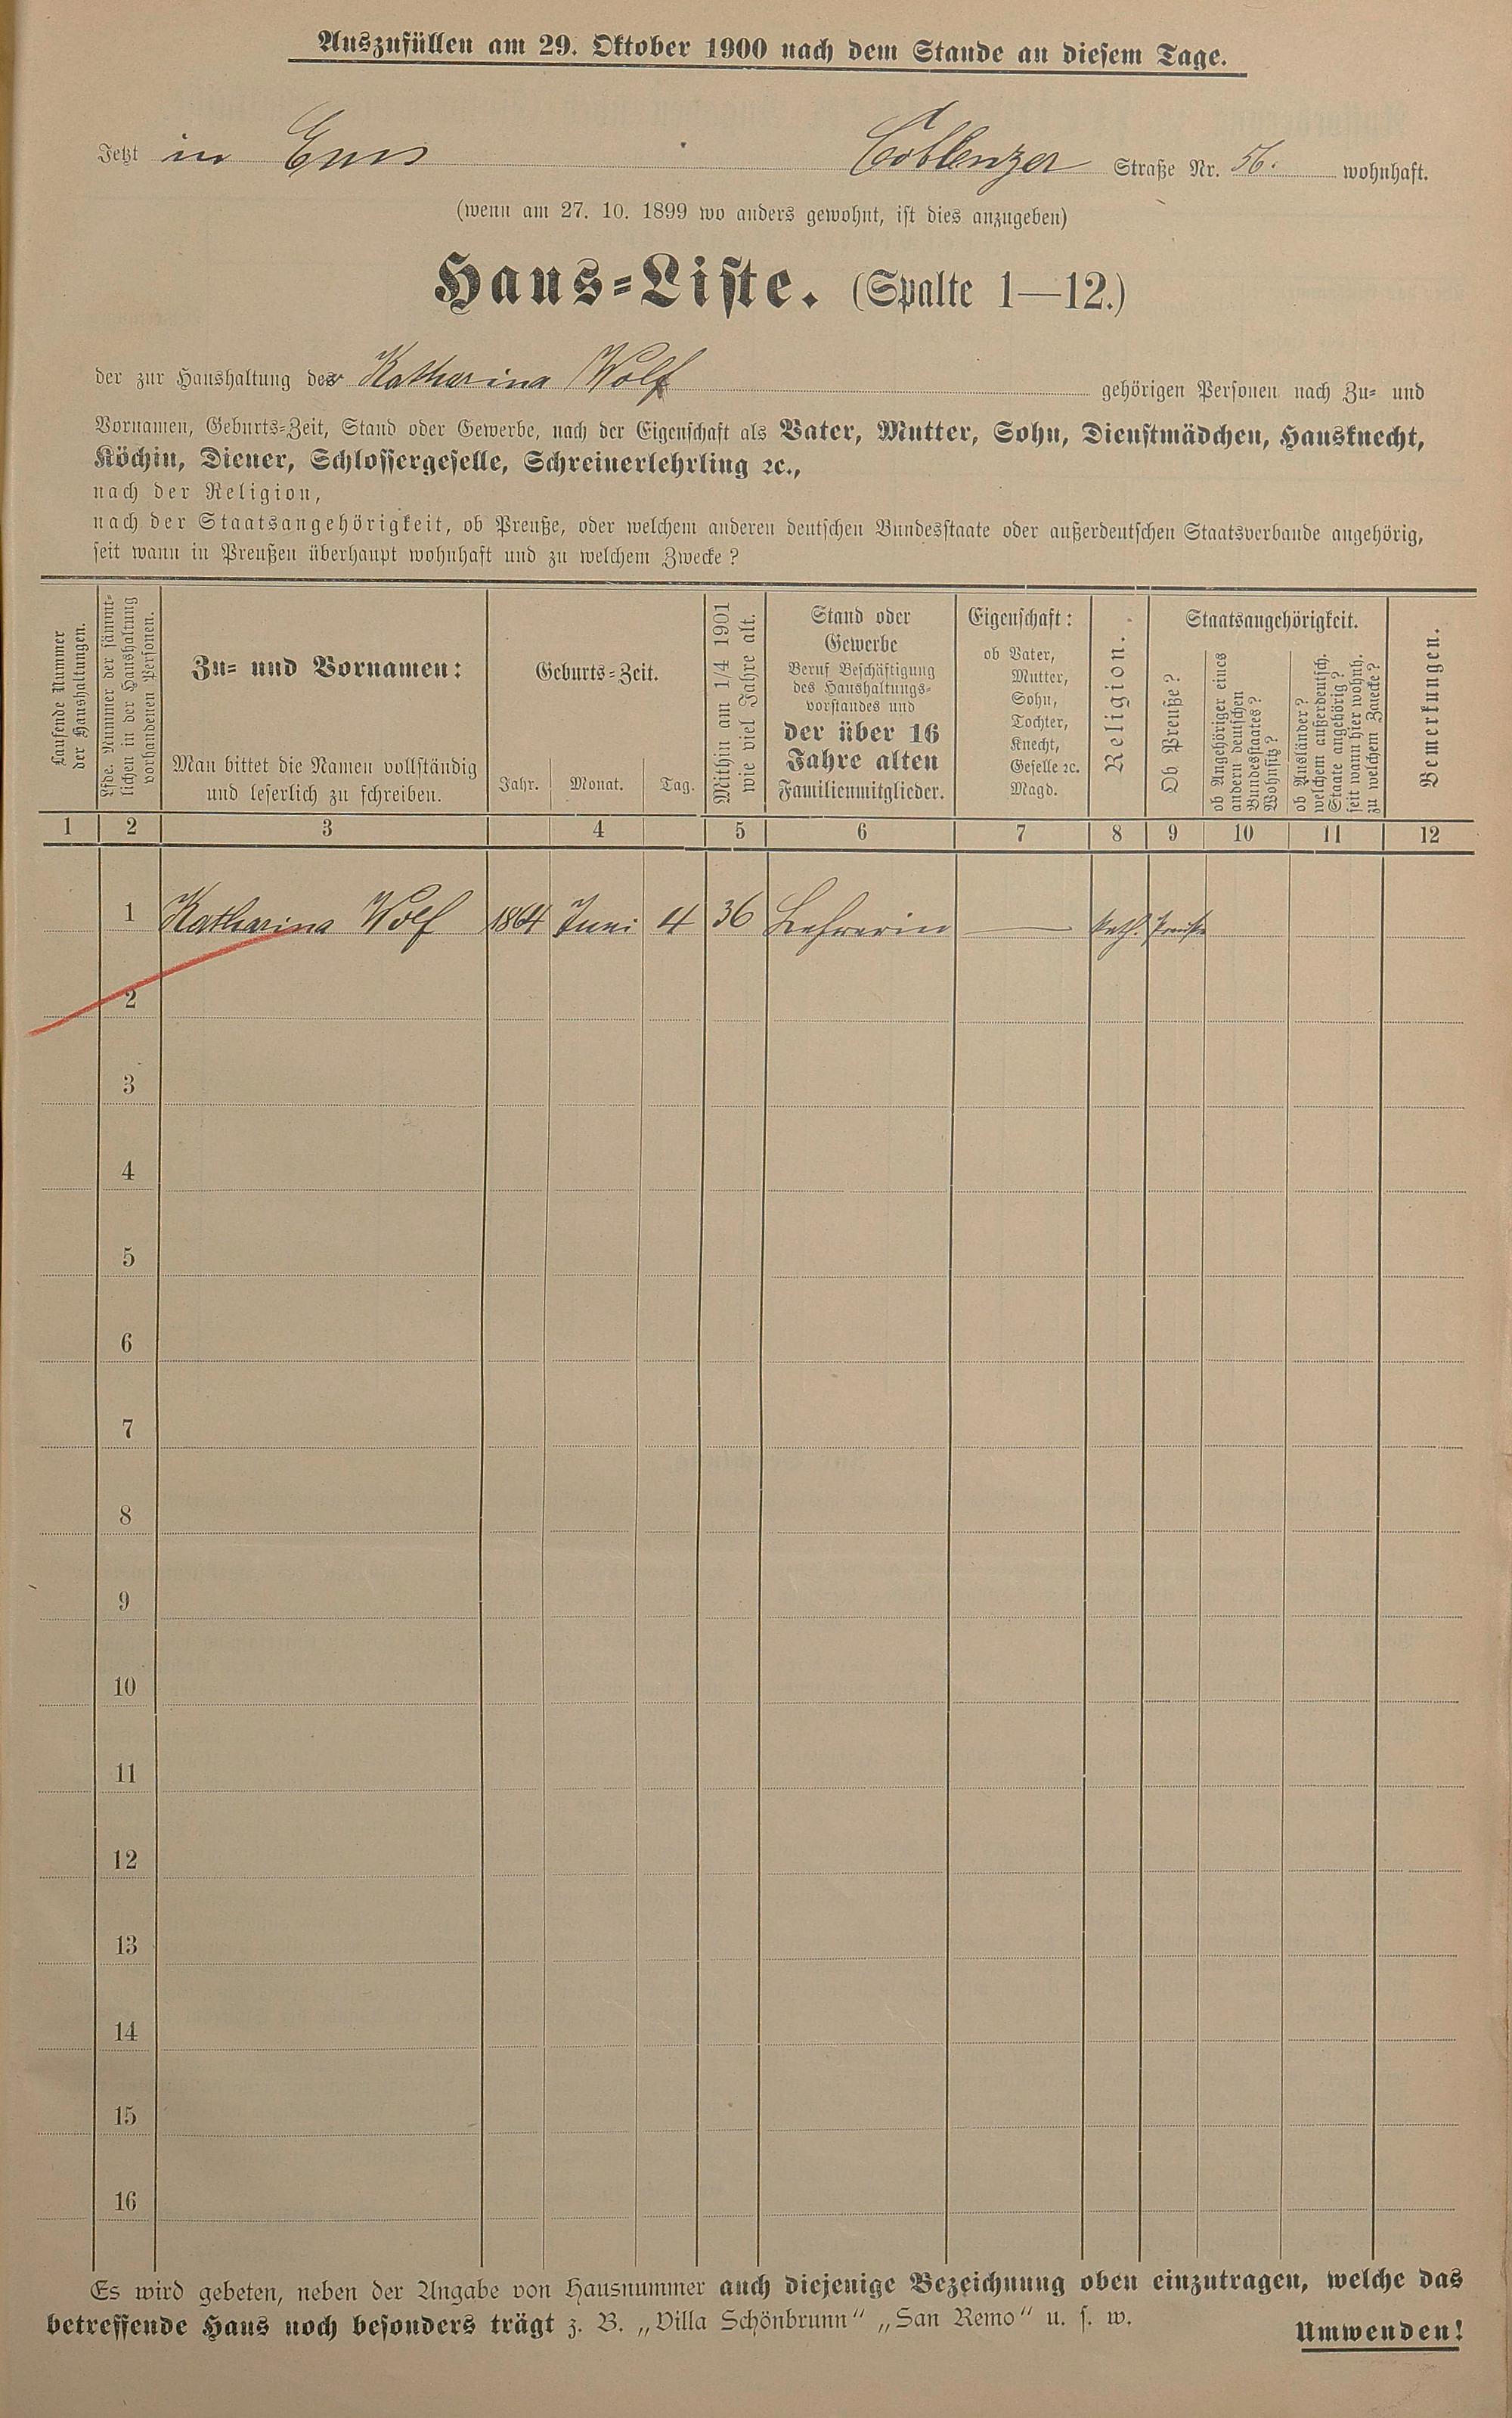 Auszufüllen am 29. Oktober 1900 nach dem Stande an diesem Tage.
Jetzt in Ems Coblenzer Straße Nr. 56. wohnhaft.
(wenn am 27. 10. 1899 wo anders gewohnt, ist dies anzugeben)
Haus-Liste. (Spalte 1—12.)
der zur Haushaltung der Katharina Wolf gehörigen Personen nach Zu- und
Vornamen, Geburts-Zeit, Stand oder Gewerbe, nach der Eigenschaft als Vater, Mutter, Sohn, Dienstmädchen, Hausknecht,
Köchin, Diener, Schlossergeselle, Schreinerlehrling ꝛc.,
nach der Religion,
nach der Staatsangehörigkeit, ob Preuße, oder welchem anderen deutschen Bundesstaate oder außerdeutschen Staatsverbande angehörig,
seit wann in Preußen überhaupt wohnhaft und zu welchem Zwecke?
Laufende Nummer
der Haushaltungen.
Lfde. Nummer der sämmt-
lichen in der Haushaltung
vorhandenen Personen.
Zu- und Vornamen:
Man bittet die Namen vollständig
und leserlich zu schreiben.
Geburts-Zeit.
Jahr. Monat. Tag.
Mithin am 1/4 1901
wie viel Jahre alt.
Stand oder
Gewerbe
Beruf Beschäftigung
des Haushaltungs-
vorstandes und
der über 16
Jahre alten
Familienmitglieder.
Eigenschaft:
ob Vater,
Mutter,
Sohn,
Tochter,
Knecht,
Geselle ꝛc.
Magd.
Religion.
Staatsangehörigkeit.
Ob Preuße?
ob Angehöriger eines
andern deutschen
Bundesstaates?
Wohnsitz?
ob Ausländer?
welchem außerdeutsch.
Staate angehörig?
seit wann hier wohnh.
zu welchem Zwecke?
Bemerkungen.
1 2 3 4 5 6 7 8 9 10 11 12
1 Katharina Wolf 1864 Juni 4 36 Lehrerin — kath. Preuße
2
3
4
5
6
7
8
9
10
11
12
13
14
15
16
Es wird gebeten, neben der Angabe von Hausnummer auch diejenige Bezeichnung oben einzutragen, welche das
betreffende Haus noch besonders trägt z. B. „Villa Schönbrunn“ „San Remo“ u. s. w.
Umwenden!